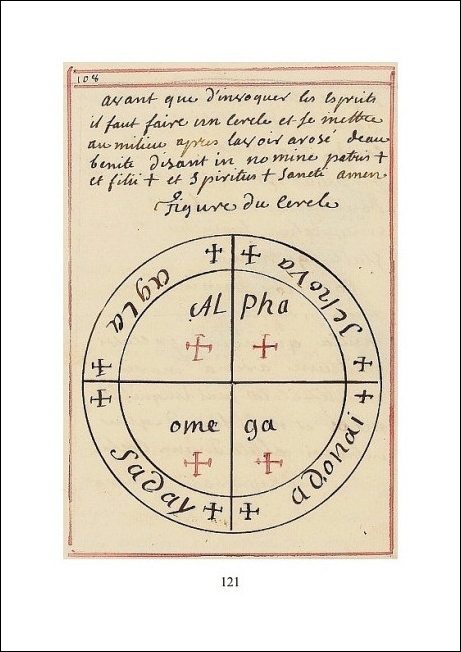 108
avant que d'invoquer les Esprits
il faut faire un Cercle et se mettre
au milieu apres lavoir arosé deau
benite disant in nomine patris +
et filii + et Spiritus + Sancti amen
Figure du Cercle
agla
Jehova
AL Pha
ome ga
Saday
adonai
121